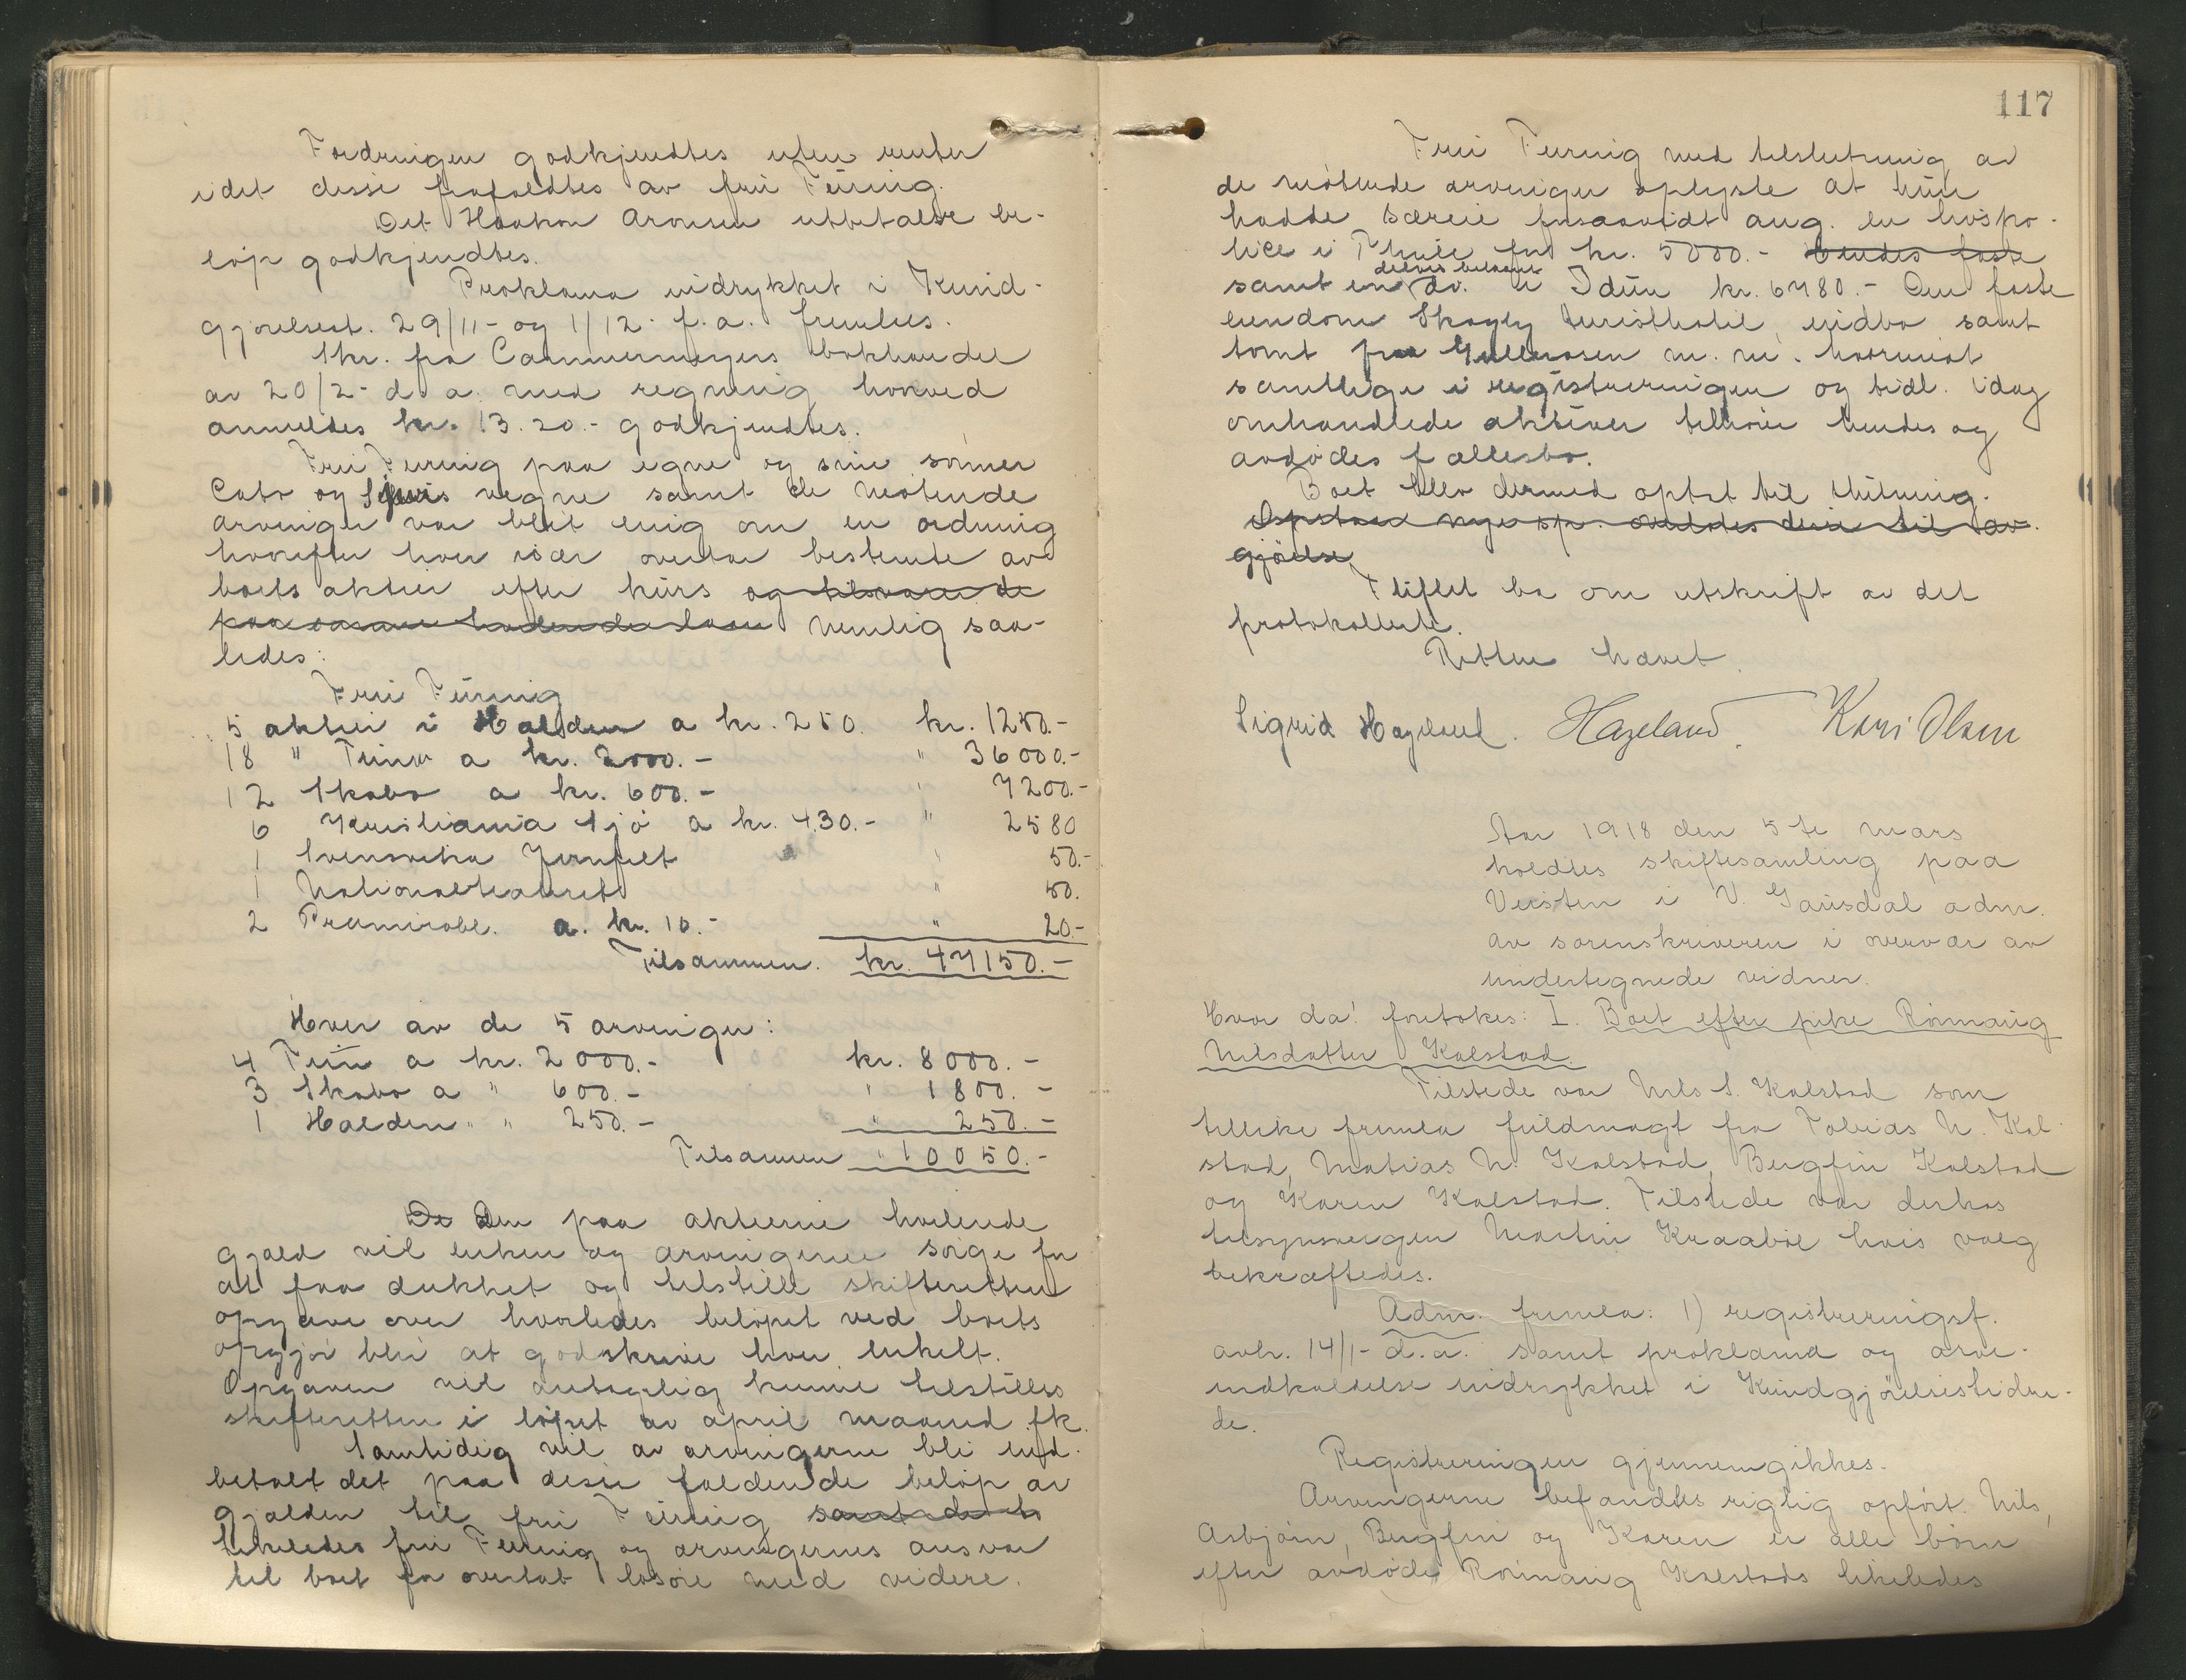 Fordringen godkjendtes uten renter
idet disse frafaldtes av fru Furnig.
Det Haakon Aronsen utbetalte be-
løp godkjendtes.
Proklama indrykket i Kund-
gjørelsest. 29/11- og 1/12- f.a. fremlees.
Skr. fra Cammermeyers bokhandel
av 20/2- d.a. med regning hvorved
anmeldes kr. 13.20.- godkjendtes.
Fru Furnig paa egne og sine sønner
Cato og vegne samt de møtende
arvinger var blit enig om en ordning
hvorefter hver især overtar bestemte av
boets aktier efter kurs og tilsvarende
paa nemlig saa-
ledes:
Fru Furnig
5 aktier i Halden a kr. 250. kr. 1250.-
18 " a kr. 2000.- " 36000.-
12 Skabo a kr. 600.- " 7200.-
6 Kristiania Sjø a kr. 430.- " 2580
1 Svensska Jernfelt " 50.-
1 Nationalteateret " 50.
2 Premieobl. a. kr. 10.- " 20.-
Tilsammen. kr. 47150.-
Hver av de 5 arvinger:
4 a kr. 2000.- kr. 8000.-
3 Skabo a " 600.- " 1800.-
1 Halden " " 250.- " 250.-
Tilsammen " 10050.-
De Den paa aktierne heilende
gjæld vil enken og arvingerne sørge for
at faa dækket og tilstille skifteretten
opgave over hvorledes beløpet ved boets
opgjør blir at godskrive hver enkelt.
Opgaven vil antagelig kunne tilstilles
skifteretten i løpet av april maaned fk.
Samtidig vil av arvingerne bli ind-
betalt det paa disse faldende beløp av
gjælden til fru Furnig samt
likeledes fru Furnig og arvingernes ansvar
til boet for overtat løsøre med videre.
117
Fru Furnig med tilslutning av
de møtende arvinger oplyste at hun
hadde særeie forsaavidt ang. en livspo-
lice i Thule for kr. 5000.- hendes faste
delvis
samt en do. i Idun kr. 6780.- Den faste
eiendom Skogly turisthotel, indbo samt
tomt fra Gullmosen m. m., hvorimot
samtlige i registreringen og tidl. idag
omhandlede aktiver tilhører hendes og
avdødes fællesbo.
Boet blev dermed optat til slutning.
Opstaar nye sp. overlates disse til av-
gjørelse.
Tliflet ba om utskrift av det
protokollerte.
Retten hævet.
Sigrid Hageland. Hageland. Kari Olsen
Aar 1918 den 5te mars
holdtes skiftesamling paa
Versten i V. Gausdal adm.
av sorenskriveren i overvær av
undertegnede vidner.
Hvor da! foretokes: I. Boet efter pike Rønnaug
Nilsdatter Kalstad.
Tilstede var Nils S. Kalstad som
tillike fremla fuldmagt fra Tobias N. Kal-
stad, Matias N. Kalstad, Bergfin Kalstad
og Karen Kalstad. Tilstede var derhos
tilsynsvergen Martin Kraabøl hvis valg
bekræftedes.
Adm. fremla: 1) registreringsf.
avh. 14/1- d.a. samt proklama og arve-
indkaldelse indrykket i Kundgjørelsestiden-
de.
Registreringen gjennemgikkes.
Arvingerne befandtes rigtig opført. Nils,
Asbjørn, Bergfin og Karen er alle børn
efter avdøde Rønnaug Kalstads likeledes